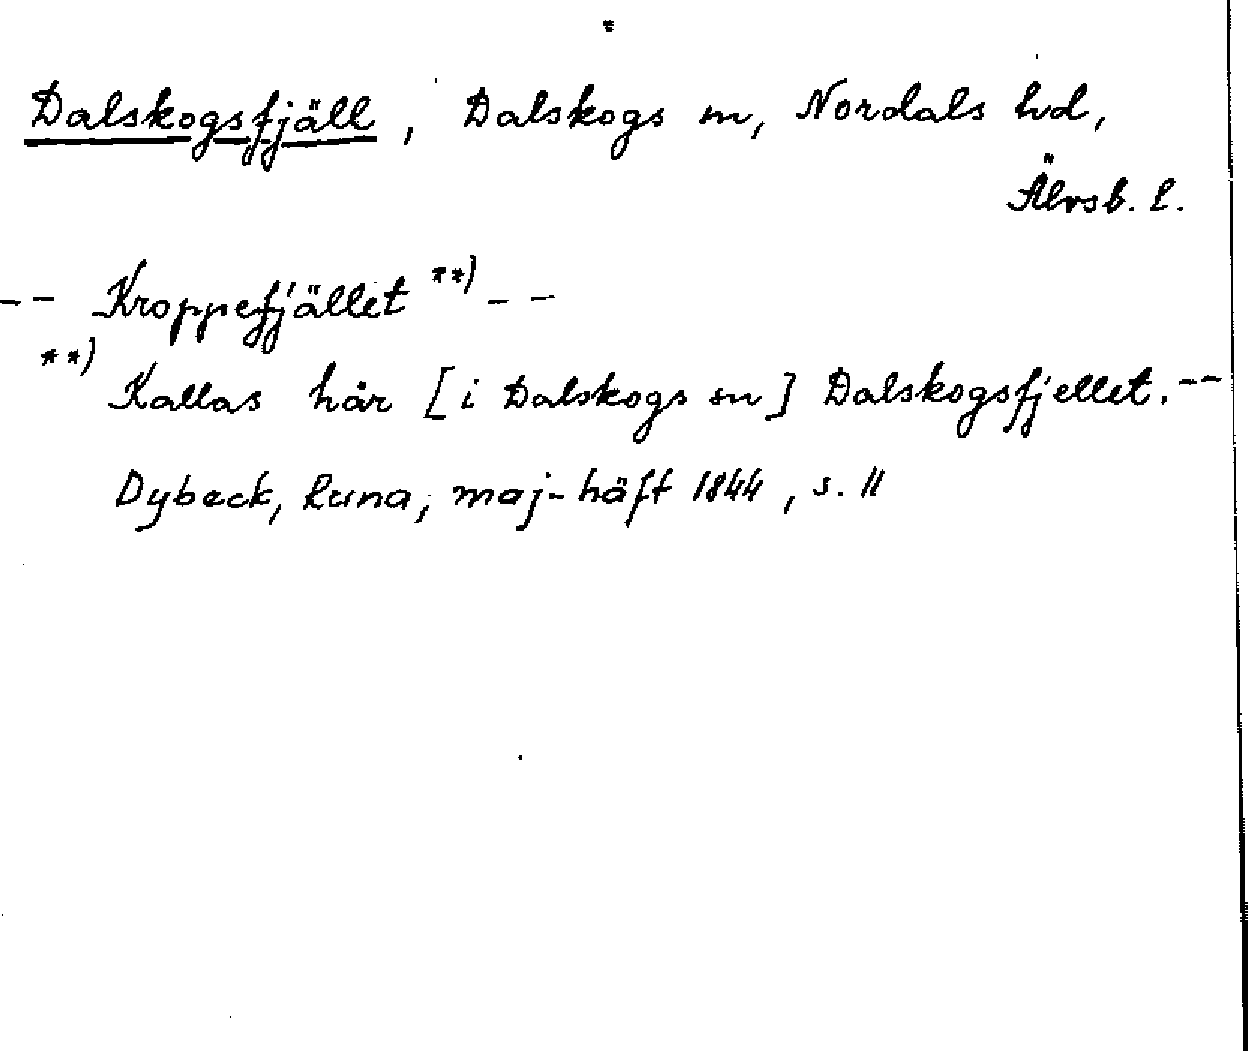 *
Dalskogsfjäll, Dalskogs sn, Nordals hd,
Älvsb. l.
-- Kroppefjället **) --
**) Kallas här [i Dalskogs sn] Dalskogsfjellet. --
Dybeck, Runa, maj-häft 1844, s. 11